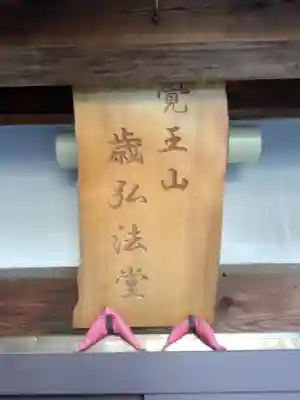 覚王山
歳弘法堂